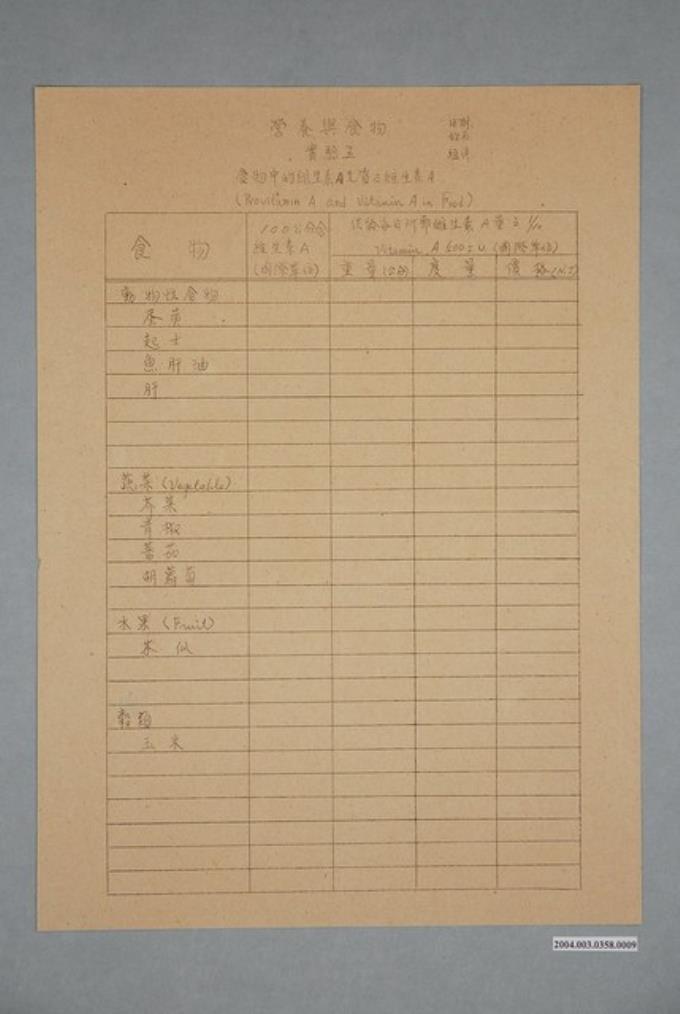 營養與食物
日期
姓名
組渾
實驗五
食物中的維生素A先質與維生素A
(Provitamin A and Vitamin A in Food)
食 物
100公分含
維生素A
(國際單位)
供給每日所需維生素A量之1/10
Vitamin A 600 I.U. (國際單位)
重量(公分)
度 量
價格(N.T)
動物性食物
蛋黃
起士
魚肝油
肝
蔬菜(Vegetable)
芥菜
青椒
蕃茄
胡蘿蔔
水果(Fruit)
木瓜
穀類
玉米
2004.003.0358.0009